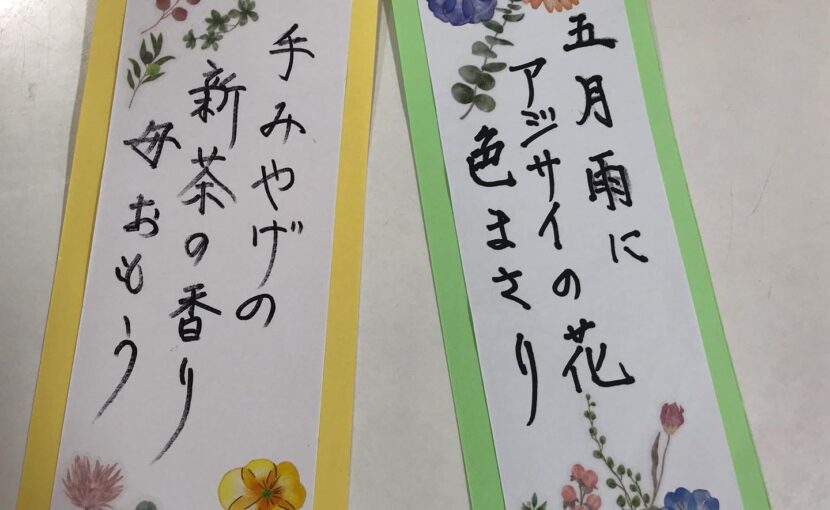 五月雨に
アジサイの花
色まさり
手みやげの
新茶の香り
母おもう